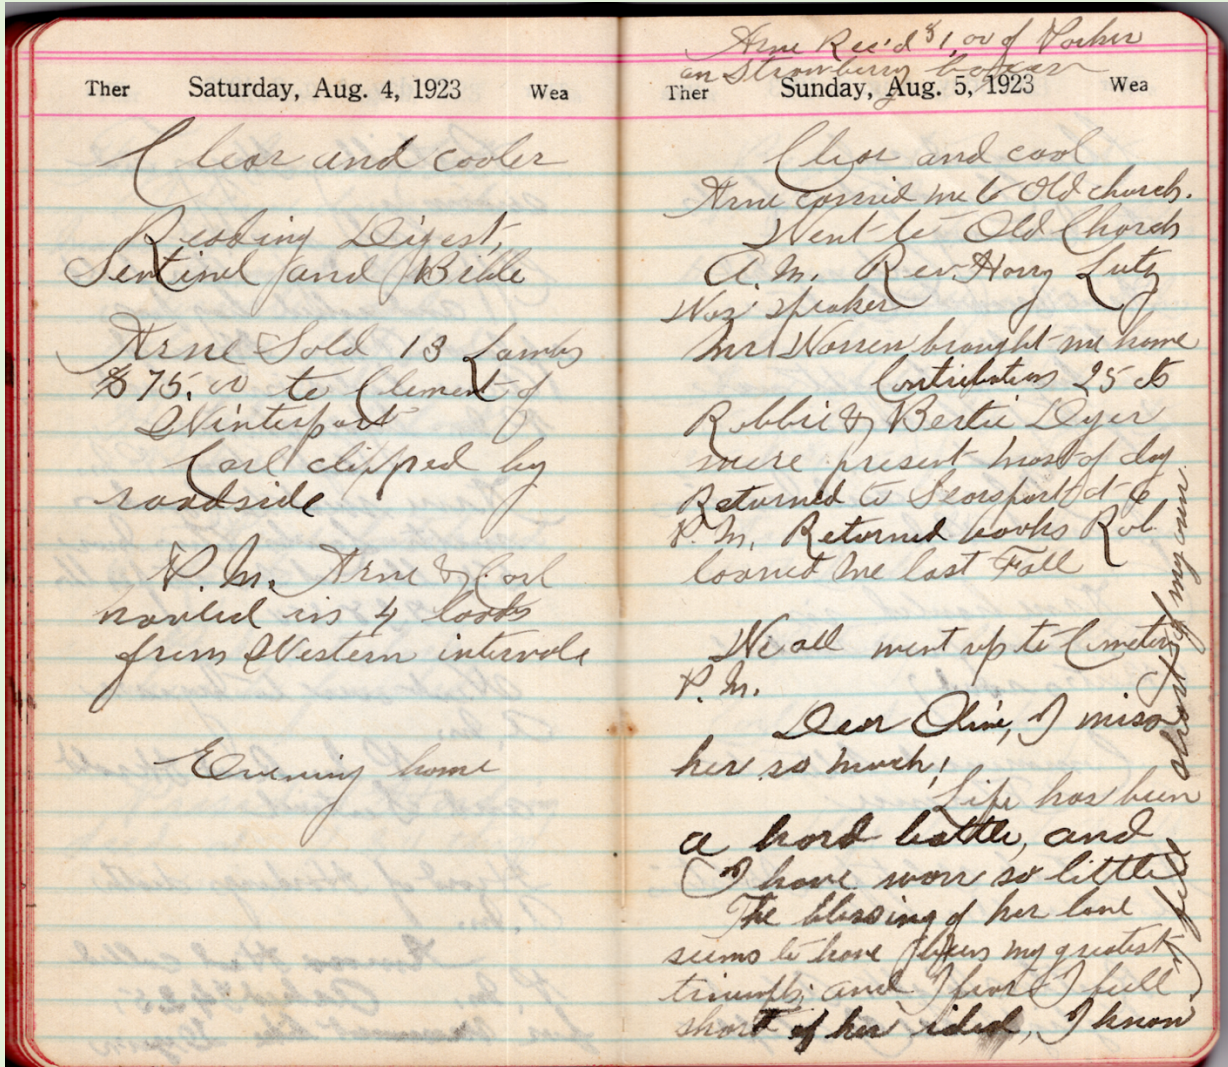 Ther Saturday, Aug. 4, 1923 Wea
Clear and cooler
Reading Digest,
Sentinel and Bible
Arne Sold 13 Lambs
$75.00 to Clement of
Winterport
Carl clipped by
roadside
P.M. Arne & Carl
hauled in 4 loads
from Western intervale
Evening home
Arne Rec'd $1.00 of Parker
on Strawberry boxes
Ther Sunday, Aug. 5, 1923 Wea
Clear and cool
Arne carried me to Old church.
Went to Old Church
A.M. Rev. Harry Lutz
Was speaker
Mr Warren brought me home
Contribution 25 cts
Robbie & Bertie Dyer
were present most of day
Returned to Searsport at 6
P.M. Returned books Rob
loaned me last Fall
We all went up to Cemetery
P.M.
Dear Olive, I miss
her so much!
Life has been
a hard battle, and
I have won so little
The blessing of her love
seems to have been my greatest
triumph; and I fear I fell
short of her ideal, I know
I fell short of my own.